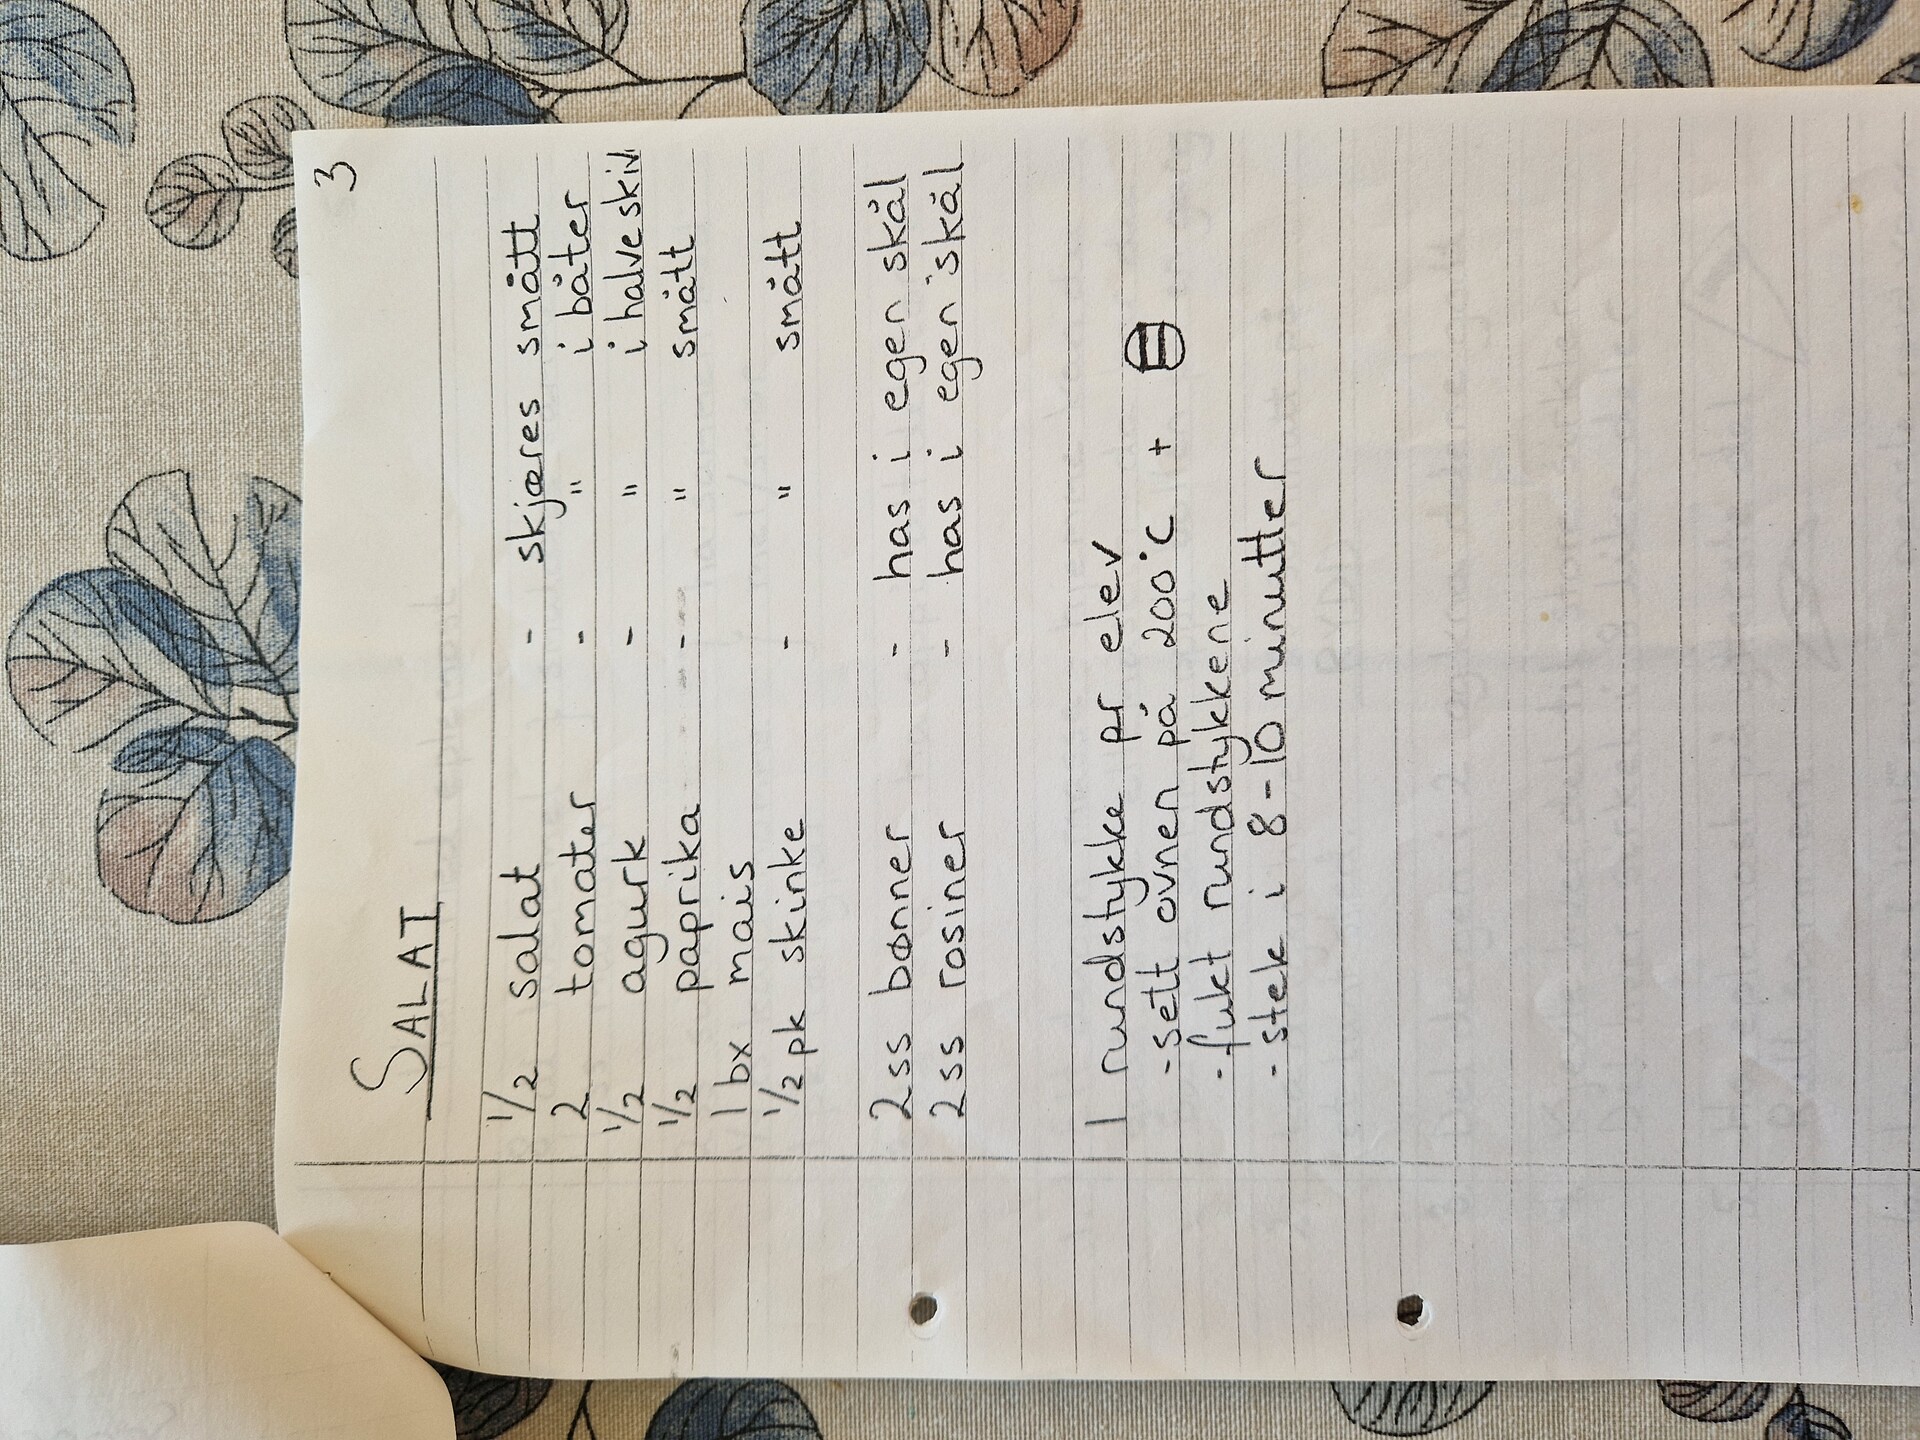 3
SALAT
1/2 salat - skjæres smått
2 tomater - " i båter
1/2 agurk - " i halve skiv
1/2 paprika - " smått
1 bx mais
1/2 pk skinke - " smått
2 ss bønner - has i egen skål
2 ss rosiner - has i egen skål
1 rundstykke pr elev
- sett ovnen på 200°C +
- fukt rundstykkene
- stek i 8-10 minutter